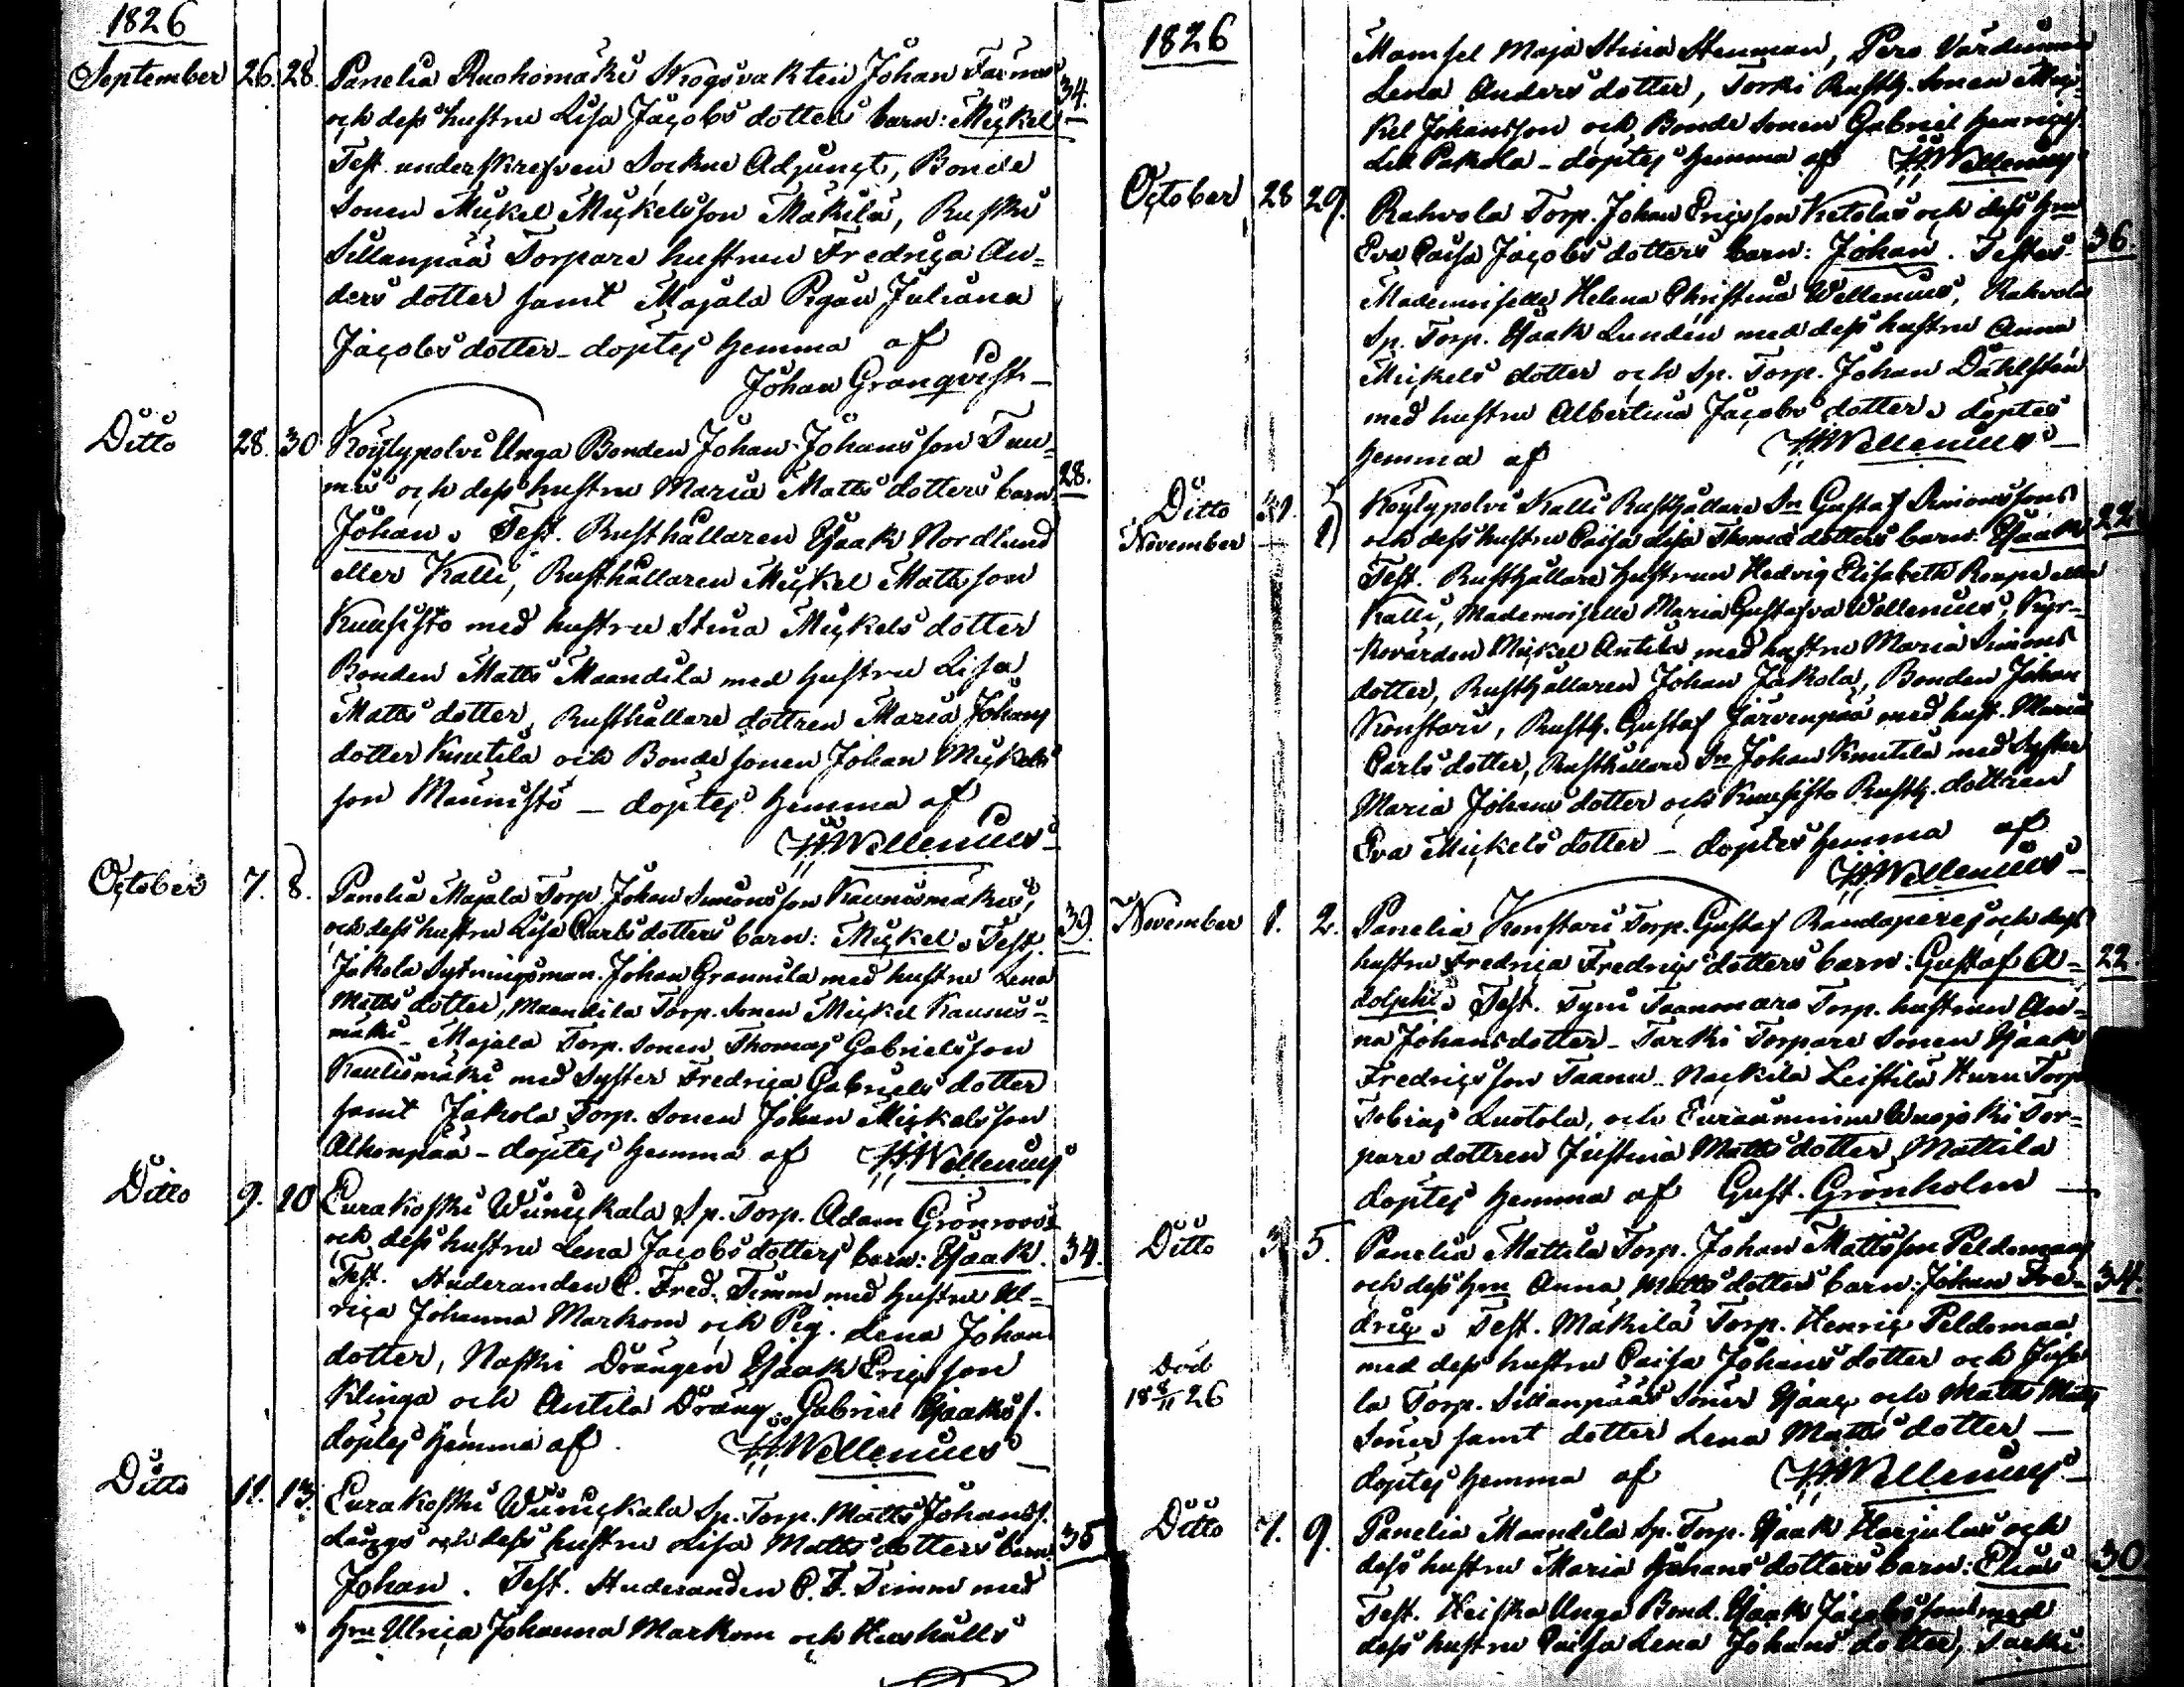 1826
September 26. 28. Panelia Ruohomäki Skogsvakten Johan
och dess hustru Lisa Jacobs dotters barn: Mickel 34.
Test. underskrefven Sockne Adjunct, Bonde
Sonen Mickel Mickelsson Mäkilä,
Sillanpää Torpare hustrun Fredrica An=
ders dotter samt Majala Pigan Juliana
Jacobs dotter – döptes hemma af
Johan Granqvist –
Ditto 28. 30 Köylypolvi Unga Bonden Johan Johansson
och dess hustru Maria Matts dotters barn 28.
Johan. Test. Rusthållaren Isaak Nordlund
eller Kalli, Rusthållaren Mickel Mattsson
Kuusisto med hustru Stina Mickels dotter
Bonden Matts Maandila med hustru Lisa
Matts dotter, Rusthållare dottren Maria Johans
dotter Knutila och Bonde sonen Johan Mickels
son Maunisto – döptes hemma af
Wellenius –
October 7. 8. Panelia Majala Torp. Johan Simonsson Kaunismäkis,
och dess hustru Lisa Carls dotters barn: Mickel. Test. 39.
Jakola Sytningsman Johan Grannila med hustru Lena
Matts dotter, Maandila Torp. Sonen Mickel Kaunis=
mäki – Majala Torp. Sonen Thomas Gabrielsson
Kaulismäki med Syster Fredrica Gabriels dotter
samt Jakola Torp. Sonen Johan Mickelsson
Alhonpää – döptes hemma af Wellenius
Ditto 9. 10 Eurakoski Wuinckala Sp. Torp. Adam Grönroos
och dess hustru Lena Jacobs dotters barn: Isaak. 34.
Test. Studeranden C. Fred. Timm med hustru Ul=
rica Johanna Markom och Pig. Lena Johans
dotter, Naski Drängen Isaak Ericsson
Klinga och Antila Dräng. Gabriel Isaakss.
döptes hemma af Wellenius
Ditto 11. 13. Eurakoski Wuinckala Sp. Torp. Matts Johanss.
Långs och dess hustru Lisa Matts dotters barn 35
Johan. Test. Studeranden C. F. Timm med
Hru Ulrica Johanna Markom och Hushålls
1826
Mamsel Maja Stina Stenman, Pera Värdinnan
Lena Anders dotter, Torki Rusth. Sonen Mic=
kel Johansson och Bonde Sonen Gabriel Henrics.
Pakola – döptes hemma af Wellenius
October 28 29. Rahvola Torp. Johan Ericsson Ketolas och dess Hru
Eva Caisa Jacobs dotters barn: Johan. Testes. 36.
Mademoiselle Helena Christina Wellenius, Rahvola
Sp. Torp. Isaak Lunden med dess hustru Anna
Mickels dotter och Sp. Torp. Johan Dahlsten
med hustru Albertina Jacobs dotter. döptes
hemma af Wellenius –
Ditto 31. Köylypolvi Kalli Rusthållare Sn Gustaf Simonssons
November 1) och dess hustru Caisa Lisa Thomas dotters barn: Isaak 22.
Test. Rusthållare hustrun Hedvig Elisabeth Roupe eller
Kalli, Mademoiselle Maria Gustafva Wellenius, Kyr=
kovärden Mickel Antila med hustru Maria Simons
dotter, Rusthållaren Johan Jakola, Bonden Johan
Konstari, Rusth. Gustaf Järvenpää med hust. Maria
Carls dotter, Rusthållare Sn Johan Knutila med Syster
Maria Johans dotter och Kuusisto Rusth. dottren
Eva Mickels dotter – döptes hemma af
Wellenius –
November 1. 2. Panelia Konstari Torp. Gustaf och dess
hustru Fredrica Fredrics dotters barn: Gustaf A= 22.
dolph. Test. Tyni Torp. hustrun An=
na Johansdotter – Torki Torpare Sonen Isaak
Fredricsson Taanu – Nackila Leistila Huru Torp.
Tobias Luotola, och Euraåminne Wuojoki Tor=
pare dottren Justina Matts dotter Mattila
döptes hemma af Gust. Grönholm –
Ditto 3. 5. Panelia Mattila Torp. Johan Mattsson Peldomaas
och dess Hru Anna Matts dotters barn: Johan Fre= 34.
dric. Test. Mäkilä Torp. Henric Peldomaa
Död med dess hustru Caisa Johans dotter och
18 8/11 26 la Torp. Sillanpääs Söner Isaac och Matts Matts
Söner samt dotter Lena Matts dotter –
döptes hemma af Wellenius –
Ditto 7. 9. Panelia Maandila Sp. Torp. Isaak Harjulas och
dess hustru Maria Johans dotters barn: Elias 30
Test. Heiska Unga Bond. Isaak Jacobsson med
dess hustru Caisa Lena Johans dotter, Torki